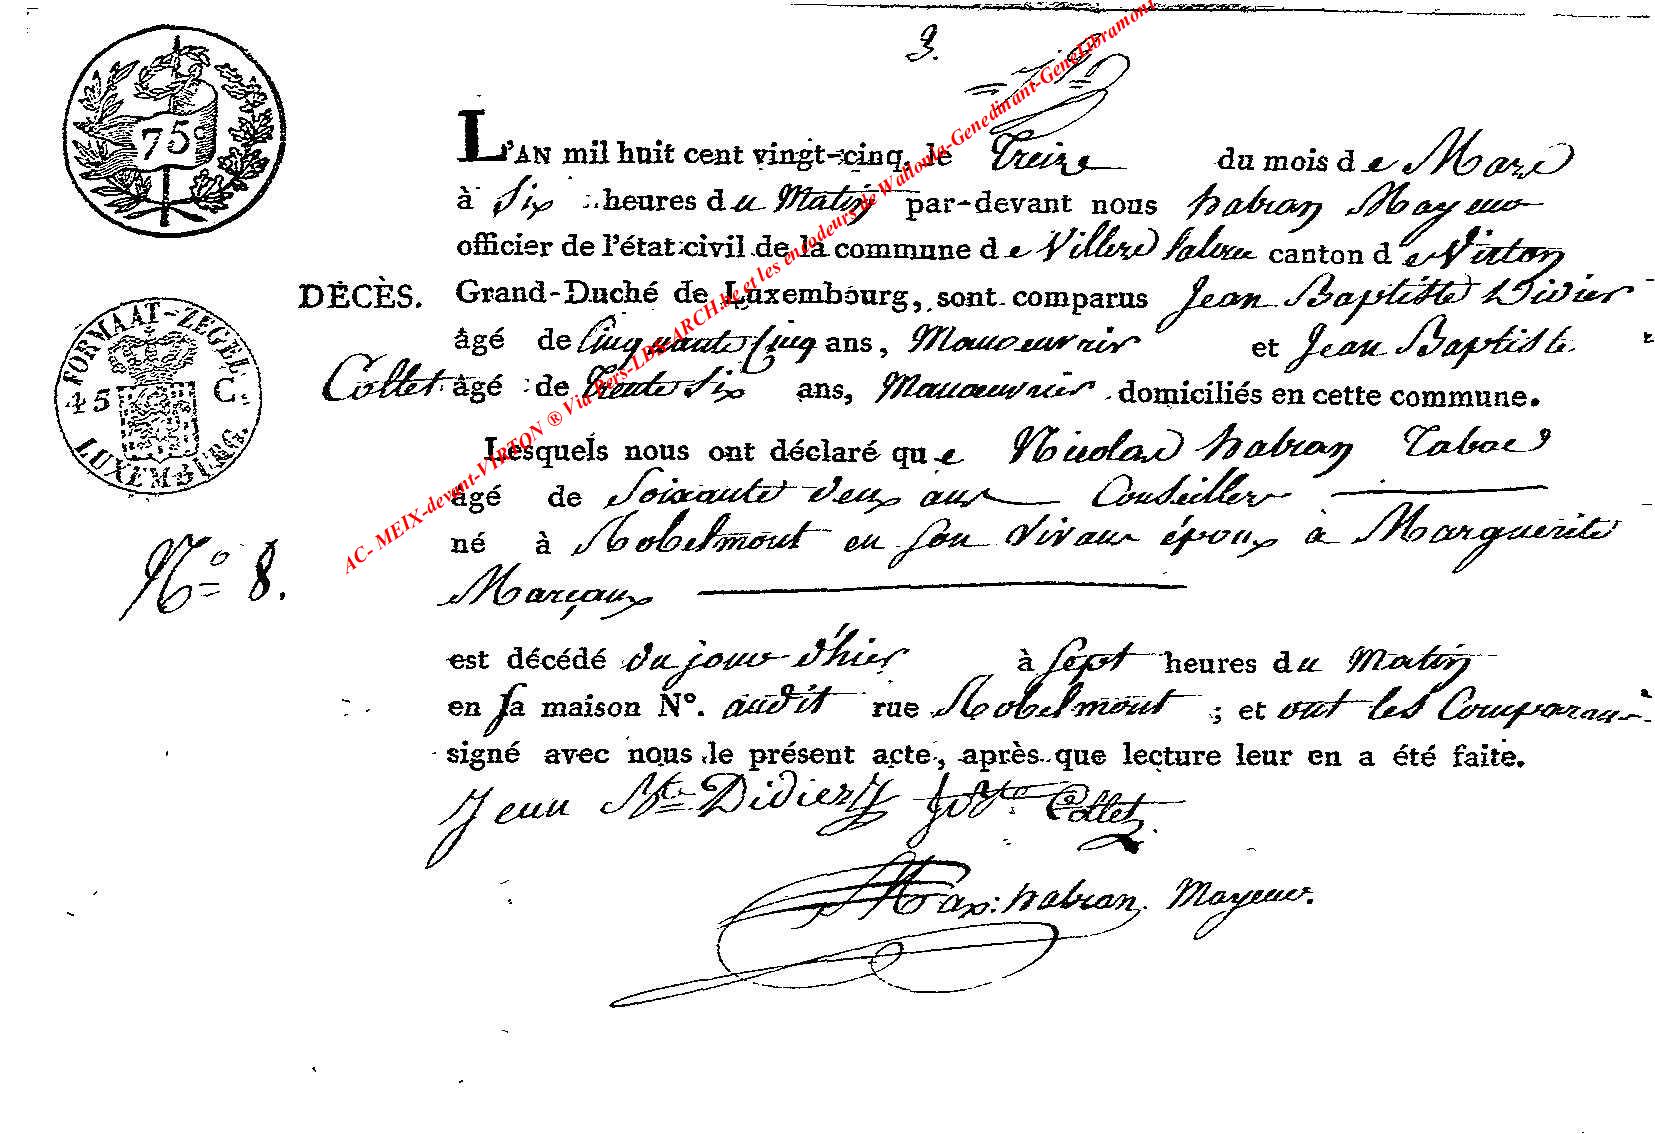 3.
75c
L'AN mil huit cent vingt-cinq, le Treize du mois de Mars
à Six heures du Matin par-devant nous habran Mayeur
officier de l'état civil de la commune de Villers la loue canton de Virton
DÉCÈS. Grand-Duché de Luxembourg, sont comparus Jean Baptiste Didier
FORMAAT-ZEGEL
45 C.
LUXEMBURG.
âgé de Cinquante Cinq ans, Manoeuvrier et Jean Baptiste
Collet âgé de Trente Six ans, Manoeuvrier domiciliés en cette commune.
Lesquels nous ont déclaré que Nicolas habran Tabac
âgé de Soixante deux ans Conseiller
né à Robelmont en son vivant époux à Marguerite
No 8. Marçaux
est décédé du jour d'hier à Sept heures du Matin
en sa maison N°. audit rue Robelmont ; et ont les Comparans
signé avec nous le présent acte, après que lecture leur en a été faite.
Jean Bte Didier J Bte Collet
Max: habran. Mayeur.
AC- MEIX-devant-VIRTON ® Via Pers-LDS-ARCH.be et les encodeurs de Wallonia-Genedinant-GeneLibramont